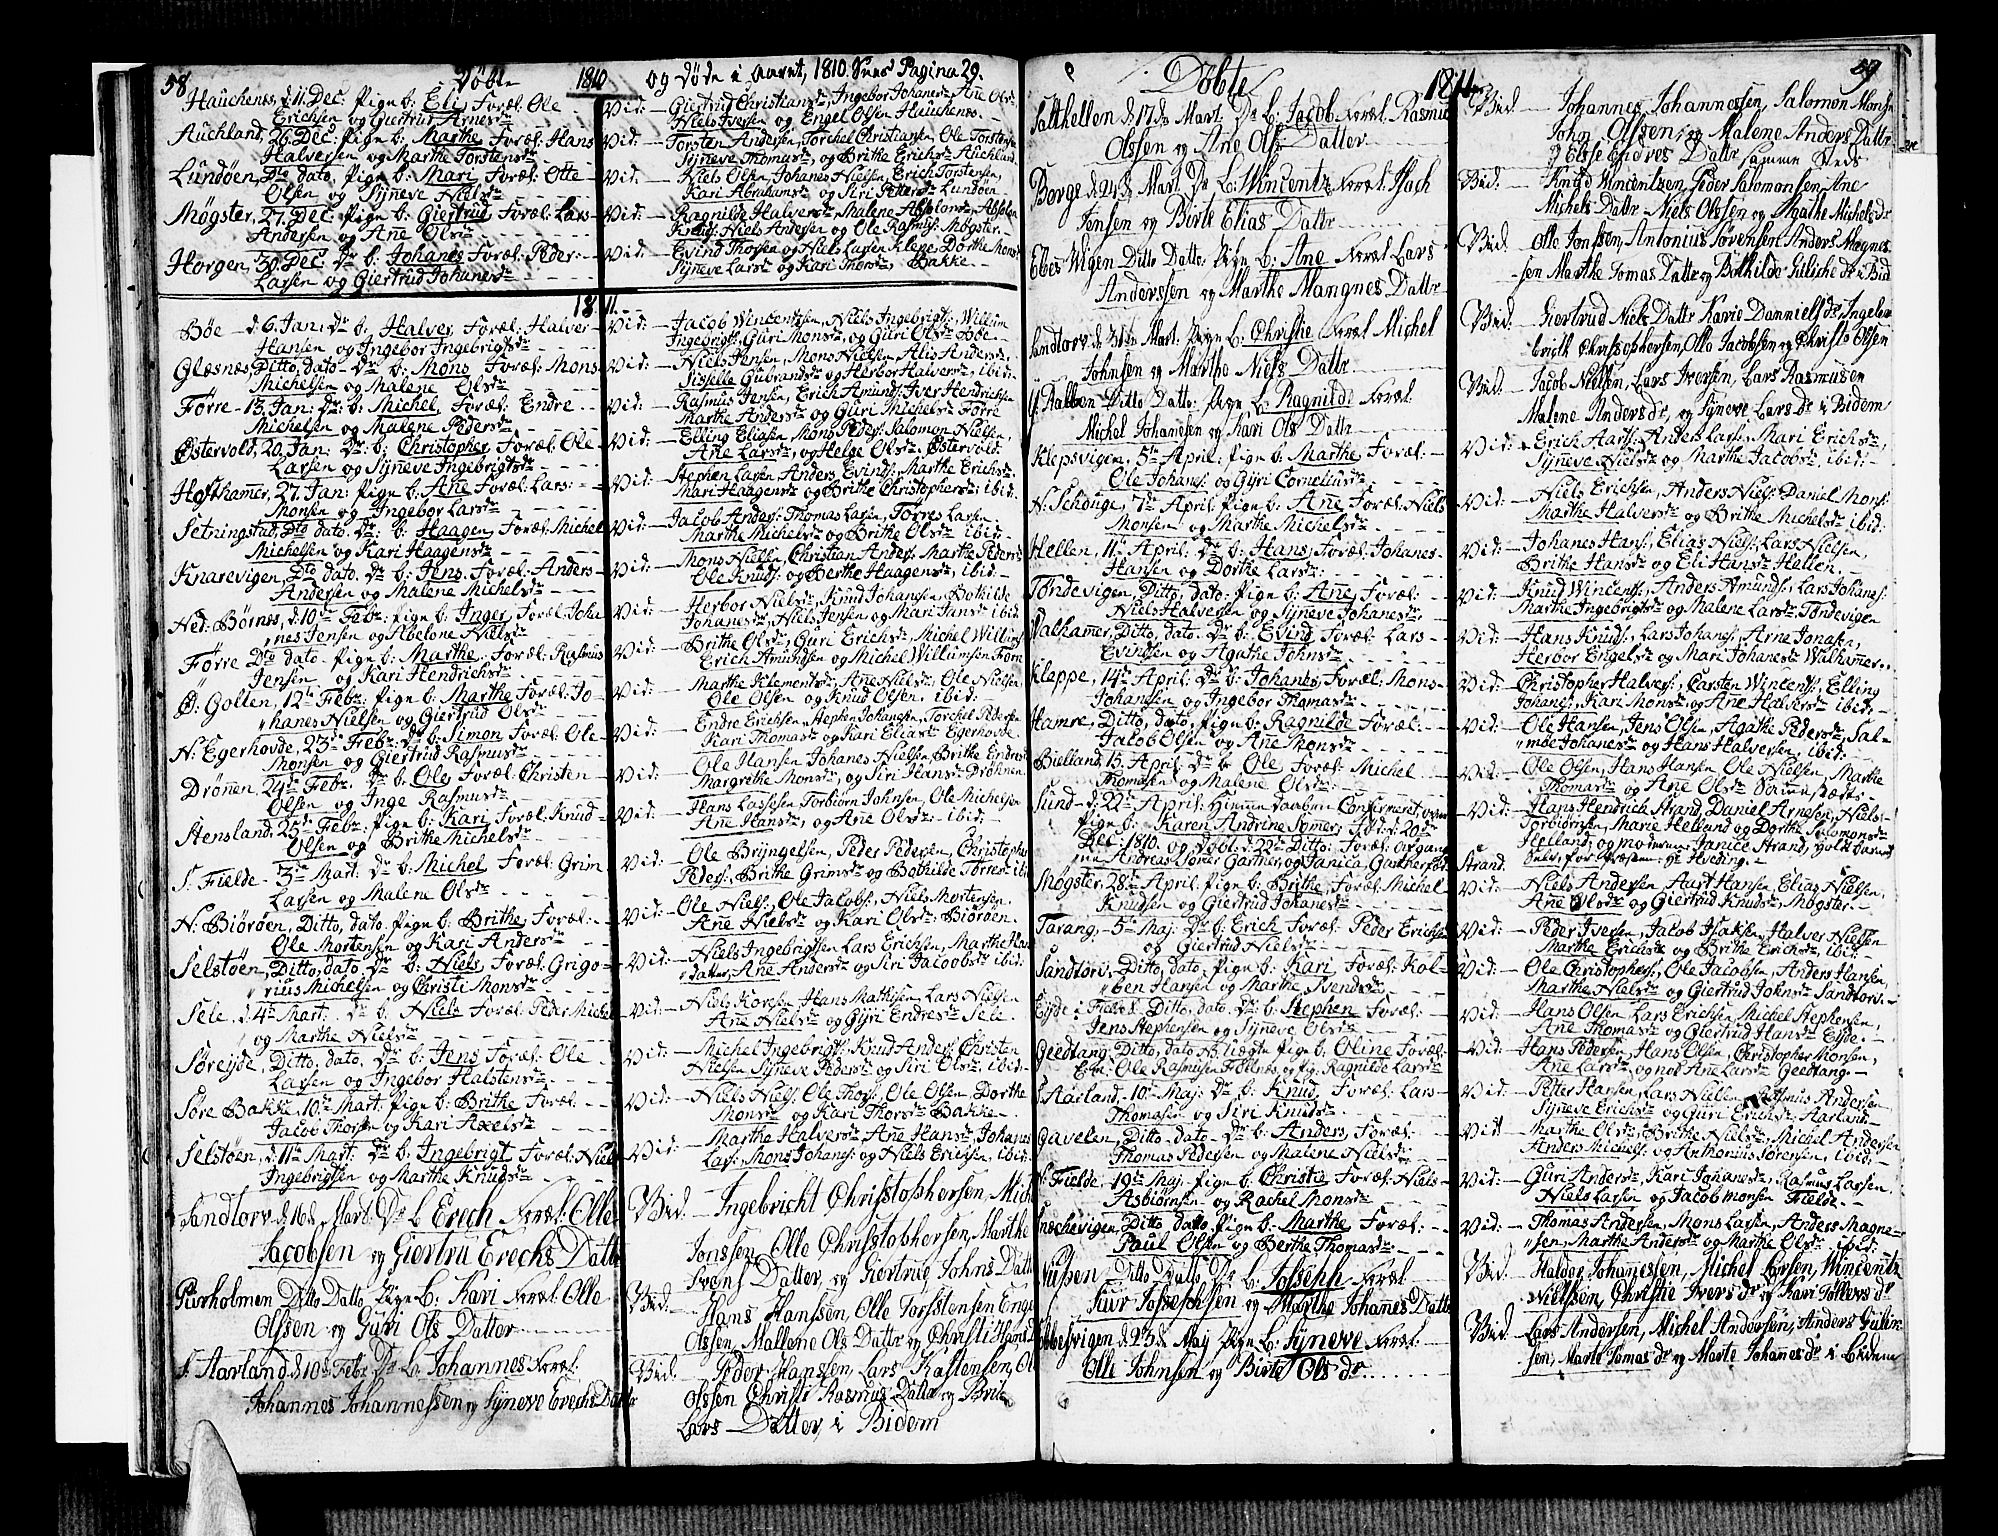 58 Døbte 1810 og døde i Aaret, 1810. Sees Pagina 29.
Hauchenes, d. 11. Dec: Pige b: Eli, Foræl: Ole
Erichsen og Giertrud Arnesdr
Auchland, 26. Dec: Pige b: Marthe, Foræl: Hans
Halversen og Marthe Torstensdr
Lundøen, Dto dato. Pige b: Mari, Foræl: Otte
Olsen og Synneve Nielsdr
Møgster, 27. Dec: Pige b: Giertrud, Foræl: Lars
Andersen og Ane Olsdr
Horgen, 30. Dec: Dr. b: Johanes, Foræl: Peder
Larsen og Giertrud Johanesdr
Vid: Giertrud Christiansdr, Ingebor Johanesdr, Ane Olsdr
Niels Iversen og Engel Olsen Hauchenes.
Vid: Torsten Andersen, Torchel Christiansen, Ole Torstensen
Synneve Thomasdr, og Brithe Erichsdr Auchland.
Vid: Niels Olsen, Johanes Nielsen, Erich Torstensen,
Kari Abrahamsdr og Siri Pettersdr Lundøen
Vid: Ragnilde Halversdr, Malene Absalonsdr, Absalon
Knuds: Niels Andersen og Ole Rasmus: Møgster.
Vid: Evind Thorsen og Niels Larsen Kleve, Dorthe Monsdr
Synneve Larsdr og Kari Thorsdr, Bakke
1811.
Bøe d. 6. Jan: Dr. b: Halver, Foræl: Halver
Hansen og Ingebor Ingebrigtsdr
Glæsnæs, Ditto, dato. Dr. b: Mons, Foræl: Mons
Michelsen og Malene Olsdr
Førre 13. Jan: Dr. b: Michel, Foræl: Endre
Michelsen og Malene Pedersdr
Østervold, 20. Jan: Dr. b: Christopher, Foræl: Ole
Larsen og Synneve Ingebrigtsdr
Hofthamer, 27. Jan: Pige b: Ane, Foræl: Lars
Monsen og Ingebor Larsdr
Setningstad, Dto dato. Dr. b: Haagen, Foræl: Michel
Michelsen og Kari Haagensdr
Knarevigen, Dto dato. Dr. b: Jens, Foræl: Anders
Andersen og Malene Michelsdr
Ned: Børnes, d. 10. Febr: Pige b: Inger, Foræl: Joha
nes Jensen og Abelone Nielsdr
Førre Dto dato. Pige b: Marthe, Foræl: Rasmus
Jensen og Kari Hendrichsdr
Ø: Golten, 12. Febr: Pige b: Marthe, Foræl: Jo
hanes Nielsen og Giertrud Olsdr
N: Egerhovde, 23. Febr: Dr. b: Simon, Foræl: Ole
Monsen og Giertrud Rasmusdr
Drønen, 24de Febr. Dr. b: Ole, Foræl: Christen
Olsen og Inge Rasmusdr
Stensland, 25. Febr: Pige b: Kari, Foræl: Knud
Olsen og Brithe Michelsdr
S: Fielde 3. Mart. Dr. b: Michel, Foræl: Grim
Larsen og Malene Olsdr
N: Biørøen, Ditto, dato. Pige b: Brithe, Foræl:
Ole Mortensen og Kari Andersdr
Selstøen, Ditto, dato. Dr. b: Niels, Foræl: Grigo
rius Michelsen og Christi Monsdr
Sele d. 4. Mart: Dr. b: Niels, Foræl: Peder Michel
og Marthe Nielsdr
Søreyde, Ditto, dato. Dr. b: Jens, Foræl: Ole
Larsen og Ingebor Halstensdr
Søre Bakke, 10. Mart. Pige b: Brithe, Foræl:
Jacob Thorsen og Kari Axelsdr
Selstøen, d. 11. Mart: Dr. b: Ingebrigt, Foræl: Niels
Ingebrigtsen og Marthe Knudsdr
Sandtorv d. 16de Mart. Dr. b. Erech Foræl: Olle
Jacobsen og Giertru Erechs Datter
Purholmen Ditto Datto Pige b: Kari Foræl: Olle
Olssen og Guri Ols Datter
S. Aarland d. 10de Febr. Dr. b: Johannes Foræl:
Johannes Johannessen og Synneve Erechs Datter
Vid: Jacob Wincentsen, Niels Ingebrigts: Willum
Ingebrigts: Guri Monsdr, og Guri Olsdr Bøe.
Vid: Niels Jensen, Mons Nielsen, Alis Andersdr,
Sisselle Gubrandsdr og Herbor Halversdr, ibid:
Vid: Rasmus Jensen, Erich Amunds: Iver Hendrichsen
Marthe Andersdr og Guri Michelsdr Førre
Vid: Elling Eliasen, Mons Peder: Salomon Nielsen,
Ane Larsdr, og Helge Olsdr, Østervold.
Vid: Stephen Larsen, Anders Evinds: Marthe Erichsdr
Mari Haagensdr og Brithe Christophersdr: ibid:
Vid: Jacob Anders: Thomas Larsen, Tørres Larsen
Marthe Michelsdr og Brithe Olsdr ibid.
Vid: Mons Niels: Christian Anders: Marthe Pedersdr
Ole Knuds: og Berthe Haagensdr, ibid:
Vid: Herbor Nielsdr, Knud Johansen, Bothilde
Johanesdr, Niels Jensen og Mari Jansdr ibid
Vid: Brithe Olsdr, Guri Erichsdr, Michel Willums:
Erich Amundsen og Michel Willumsen Førre
Vid: Marthe Klementsdr, Ane Nielsdr, Ole Nielsen
Ole Olsen og Knud Olsen, ibid:
Vid: Endre Erichsen, Stephen Johansen, Torchel Pedersen
Kari Thomasdr og Kari Eliasdr Egerhovde
Vid: Ole Hansen, Johanes Nielsen, Brithe Endresdr
Margrethe Monsdr, og Siri Hansdr Drønen.
Vid: Hans Lassesen, Torbiørn Johnsen, Ole Michelsen
Ane Hansdr, og Ane Olsdr: ibid:
Vid: Ole Bryngelsen, Peder Pedersen, Christopher
Peders: Brithe Grimsdr og Bothilde Tørresdr ibid
Vid: Ole Niels: Ole Jacobs: Niels Mortensen,
Ane Nielsdr og Kari Olsdr Biørøen.
Vid: Niels Ingebrigtsen, Lars Erichsen, Marthe Hans
datter, Ane Andersdr og Siri Jacobsdr ibid:
Vid: Niels Korsen, Hans Mathisen, Lars Nielsen
Ane Nielsdr og Gyri Endresdr Sele.
Vid: Michel Ingebrigts: Knud Anders: Christen
Nielsen, Synneve Pedersdr og Siri Olsdr, ibid:
Vid: Niels Niels: Ole Thors: Ole Olsen, Dorthe
Monsdr og Kari Thorsdr Bakke
Vid: Marthe Halversdr, Ane Hansdr, Johanes
Lars: Mons Johans: og Niels Erichsen, ibid:
Vid. Ingebricht Christophersen, Michel
Jonssen, Olle Christophersen, Marthe
Ivers Datter, og Giertrug Johns Datter
Vid. Hans Hanssen, Olle Torstensen, Engel
Olssen, Mallene Ols Datter og Christi Hans D
Vid. Peder Hanssen, Lars Kastensen, Ol
Olssen, Christi Rasmus Datter og Brite
Lars Datter, i Bidem
Døbte 1811. 59
Salthellen d. 17de Mart. Dr. b. Jacob Foræl. Rasmus
Olssen og Ane Ols Datter
Borge d. 24de Mart. Dr. b: Wincentz Foræl. Isach
Jensen og Birte Elias Datter
Ebbes Wigen Ditto Datto Pige b. Ane Foræl. Lars
Anderssen og Marthe Mangnes Dattr
Sandtorv d. 31te Mart. Pige b. Christie Foræl. Michel
Johnsen og Marthe Niels Dattr
Y. Kalven Ditto Datto: Pige b. Ragnilde Foræl.
Michel Johanesen og Kari Ols Dattr
Klepsvigen, 5te April. Pige b: Marthe, Foræl:
Ole Johans: og Gyri Corneliusdr
N: Schouge, 7de April. Pige b: Ane, Foræl: Niels
Monsen og Marthe Michelsdr
Hellen, 11. April: Dr. b: Hans, Foræl: Johanes
Hansen og Dorthe Larsdr:
Tøndevigen, Ditto, dato. Pige b: Ane, Foræl:
Niels Halversen og Synneve Johanesdr
Walhamer, Ditto, dato. Dr. b: Evind, Foræl: Lars
Evindsen og Agathe Johnsdr
Klappe, 14. April: Dr. b: Johanes, Foræl: Mons
Johansen og Ingebor Thomasdr
Hamre, Ditto, dato, Pige b: Ragnilde, Foræl:
Jacob Olsen og Ane Monsdr
Bielland, 15. April. Dr. b: Ole, Foræl: Michel
Thomasen og Malene Olsdr
Sund d. 22de April: Hiemmedaaben Confirmeret over
Pige b: Karen Andrine Sømer, Fød: d: 20de
Dec: 1810. og Døbt d: 22de Ditto: Foræl:
Andreas Sømer Gartner, og Janica
Møgster 28de April. Pige b: Brithe, Foræl: Michel
Knudsen og Giertrud Johanesdr
Tarang, 5te Maj. Dr. b: Erich, Foræl: Peder Erichsen
og Giertrud Nielsdr
Sandtorv, Ditto, dato, Pige b: Kari, Foræl: Kol-
ben Hansen og Marthe Svendsdr
Eyde i Field, Ditto, dato. Dr. b: Stephen, Foræl:
Jens Stephensen og Synneve Olsdr
Geedtang, Ditto, dato. Pige b: Oline Foræl:
E.m. Ole Rasmusen Føllnes, og pig: Ragnilde Larsdr
S: Aarland, 10. Maj: Dr. b: Knud, Foræl: Lars
Thomasen og Siri Knudsdr
Gavelen, Ditto, dato. Dr. b: Anders, Foræl:
Thomas Pedersen og Malene Nielsdr:
S. Fielde, 19de Maj. Pige b: Christie, Foræl: Niels
Asbiørnsen og Rachel Monsdr
Snæchevigen, Ditto, datto, Pige b: Marthe Foræl:
Paul Olsen og Berthe Thomasdr
Ditto Datto Dr. b. Josseph Foræl.
Siur Jossephsen og Marthe Johannes Dattr
Ebbesvigen d. 23de Maj Pige b. Synneve Foræl.
Olle Johnsen og Birte Ols dr
Vid. Johannes Johannessen, Salomon Monsen
John Olssen, og Malene Anders Dattr
og Elsse Endres Dattr samme Steds
Vid. Knud Wincentzen, Peder Salomonsen, Ane
Michels Dattr, Niels Olssen og Marthe Michels dr
Vid. Otto Jonssen, Antonius Sørensen, Anders Magnes
sen, Marthe Tomas Dattr og Bothilde dr i Bid
Vid. Giertrud Niels Dattr, Karie Danniels dr, Ingebor
brigth Christophersen, Otto Jacobsen og Christo Olsen
Vid. Jacob Nielsen, Lars Iversen, Lars Rasmusen
Malene Anders dr, og Synneve Lars dr i Bidem
Vid: Erich Aarts: Anders Lars: Mari Erichsdr,
Synneve Nielsdr og Marthe Jacobsdr ibid:
Vid: Niels Erichsen, Anders Niels: Daniel Mons:
Marthe Halversdr og Brithe Michelsdr ibid:
Vid: Johanes Hans: Elias Niels: Lars Nielsen,
Brithe Hansdr og Eli Hansdr Hellen.
Vid: Knud Wincents: Anders Amunds: Lars Johans:
Marthe Ingebrigtsdr og Malene Larsdr Tøndevigen
Vid: Hans Knuds: Lars Johans: Arne Jonasen,
Herbor Engelsdr og Mari Johanesdr Walhamer.
Vid: Christopher Halvers: Carsten Wincents: Elling
Johanes: Kari Monsdr og Ane Halversdr ibid:
Vid: Ole Hansen, Jens Olsen, Agathe Pedersdr, Sal-
mbe Johanesdr og Hans Halversen, ibid:
Vid: Ole Olsen, Hans Hansen, Ole Nielsen, Marthe
Thomasdr og Ane Olsdr Samestædts.
Vid: Hans Hendrich Strand, Daniel Arnesen, Niels
Torbiørnsen, Marie Hetland og Dorthe Salomonsdr
Hetland, og moderen Janice Strand, holdt barnet
Selv, for Præsten: Hr Hveding.
Strand.
Vid: Niels Andersen, Aart Hansen, Elias Nielsen,
Ane Olsdr og Giertrud Knudsdr, Møgster.
Vid: Peder Iversen, Jacob Isaksen, Halver Nielsen
Marthe Ericsdr og Brithe Erichsdr, ibid:
Vid: Ole Christophers: Ole Jacobsen, Anders Hansen,
Marthe Nielsdr og Giertrud Johnsdr Sandtorv.
Vid: Hans Olsen, Lars Erichsen, Michel Stephensen,
Ane Thomasdr og Giertrud Hansdr Eyde.
Vid: Hans Pedersen, Hans Olsen, Christopher Monsen,
Ane Larsdr, og nok Ane Larsdr Geedtang.
Vid: Peter Hansen, Lars Niels: Rasmus Andersen,
Synneve Erichsdr og Guri Erichsdr Aarland
Vid: Marthe Olsdr, Brithe Nielsdr, Michel Andersen
Anders Michels: og Anthonius Sørensen, ibid:
Vid: Guri Andersdr, Kari Johanesdr, Rasmus Larsen.
Niels Larsen og Jacob Monsen Fielde.
Vid: Thomas Andersen, Mons Larsen, Anders Magne-
sen, Marthe Andersdr og Marthe Olsdr ibid:
Vid. Haldor Johanessen, Michel Larsen, Wincentz
Nielssen, Christie Ivers dr og Kari Tollevs dr
Vid. Lars Andersen, Michel Andersen, Anders
sen, Marte Tomas dr og Marte Johannes dr i Bidem